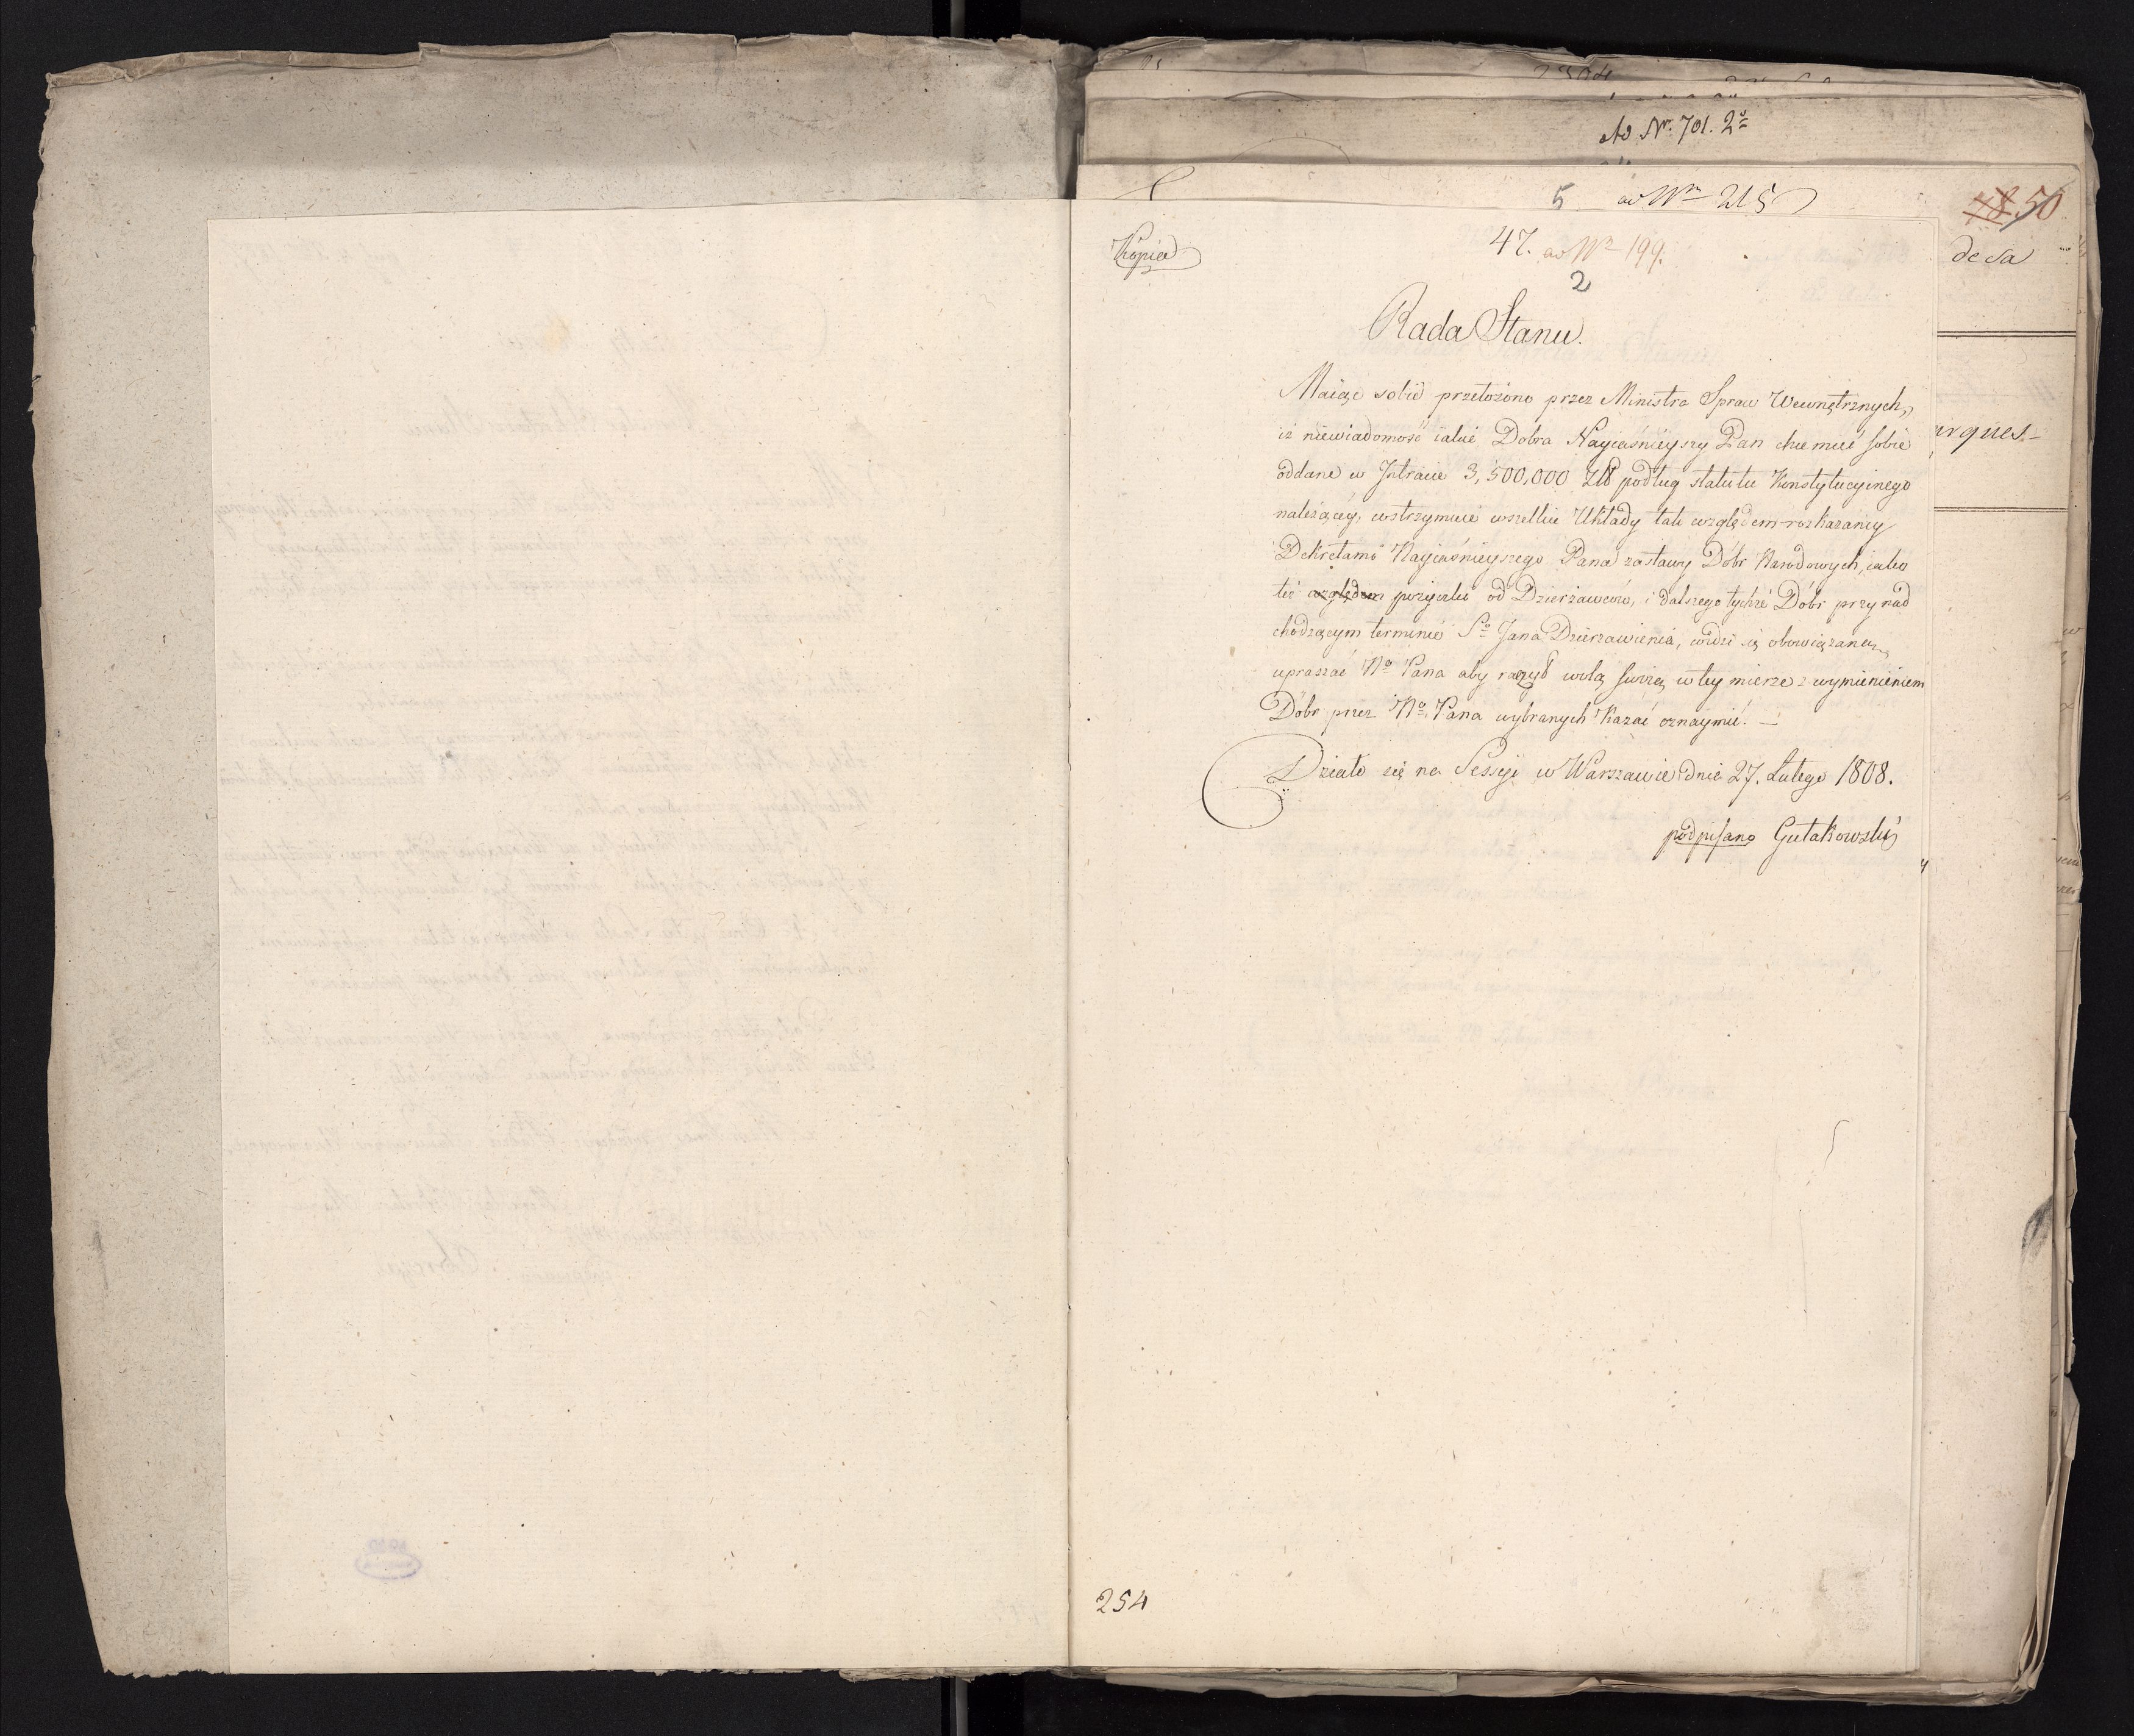 Ad Nr. 701. 2º
5 ad Nrm 215
50
de sa
arques.
Kopia
47. ad Nrm 199.
2
Rada Stanu.
Maiąc sobie przełożono przez Ministra Spraw Wewnętrznych,
iż niewiadomość iakie Dobra Nayiaśnieyszy Pan chce mieć sobie
oddane w Intracie 3,500,000 Złł podług statutu Konstytucyinego
należącey, wstrzymuie wszelkie Układy tak względem rozkazaney
Dekretami Nayiaśnieyszego Pana zastawy Dóbr Narodowych, iako
też względem pożyczki od Dzierżawców, i dalszego tychże Dóbr przy nad
chodzącym terminie Sº Jana Dzierżawienia, widzi się obowiązaną
upraszać Nº Pana aby raczył wolą swoię w tey mierze z wymienieniem
Dóbr przez Nº Pana wybranych kazać oznaymić. —
Działo się na Sessyi w Warszawie dnia 27. Lutego 1808.
podpisano Gutakowski
254